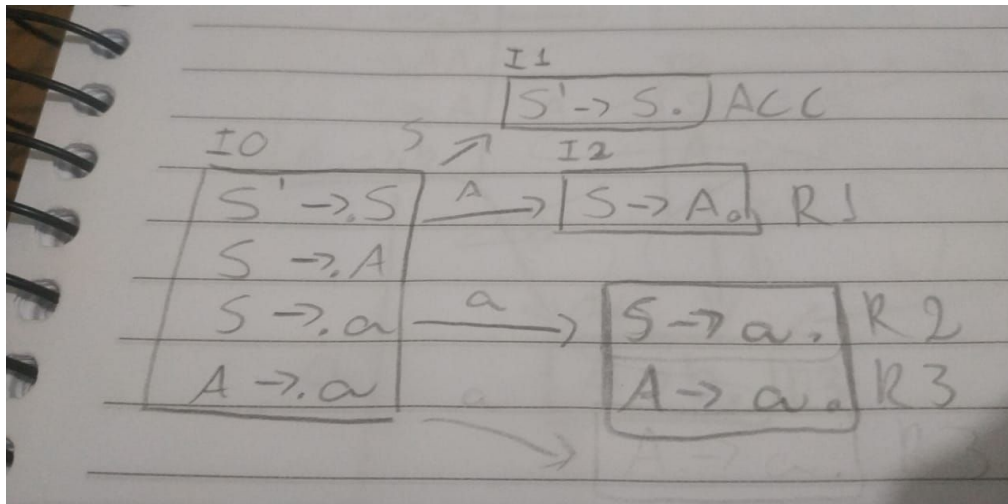 I1
S' -> S. ACC
S
I0
I2
S' ->.S
A
S -> A. R1
S ->.A
S ->.a
a
S -> a. R2
A ->.a
A -> a. R3
a
A -> a. R3